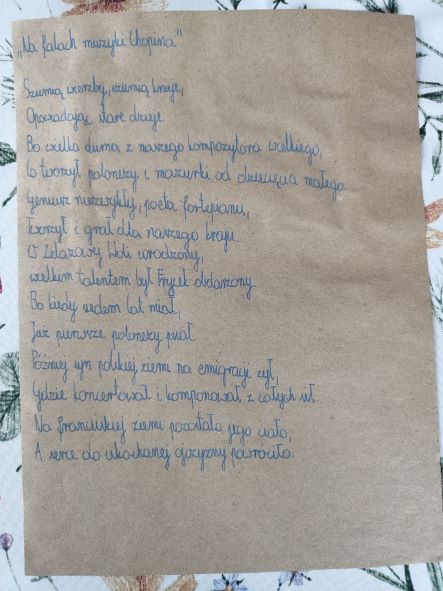 „Na falach muzyki Chopina”
Szumią wierzby, szumią knieje,
Opowiadając stare dzieje.
Bo wielka duma z naszego kompozytora wielkiego,
Co tworzył polonezy i mazurki od dziecięcia małego.
Geniusz niezwykły, poeta fortepianu,
Tworzył i grał dla naszego kraju.
W Żelazowej Woli urodzony,
wielkim talentem był Frycek obdarzony.
Bo kiedy siedem lat miał,
Już pierwsze polonezy pisał.
Później syn polskiej ziemi na emigracji żył,
Gdzie koncertował i komponował z całych sił.
Na francuskiej ziemi pozostało jego ciało,
A serce do ukochanej ojczyzny powróciło.